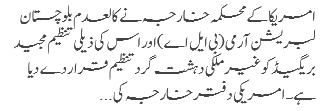 امریکا کے محکمہ خارجہ نے کالعدم بلوچستان
لبریشن آرمی (بی ایل اے) اور اس کی ذیلی تنظیم مجید
بریگیڈ کو غیر ملکی دہشت گرد تنظیم قرار دے دیا
ہے۔ امریکی دفتر خارجہ کی...